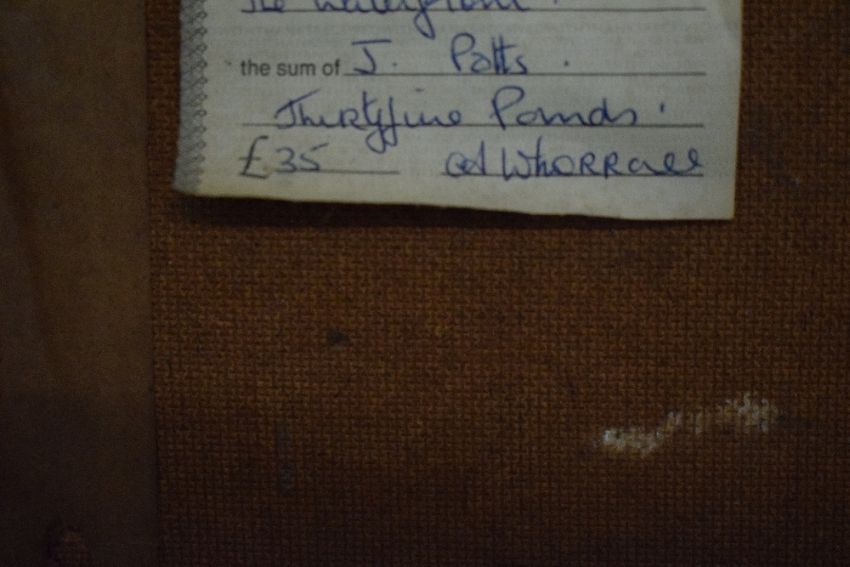 The Waterfront.
the sum of J. Potts.
Thirtyfive Pounds.
£35 A Whorrall